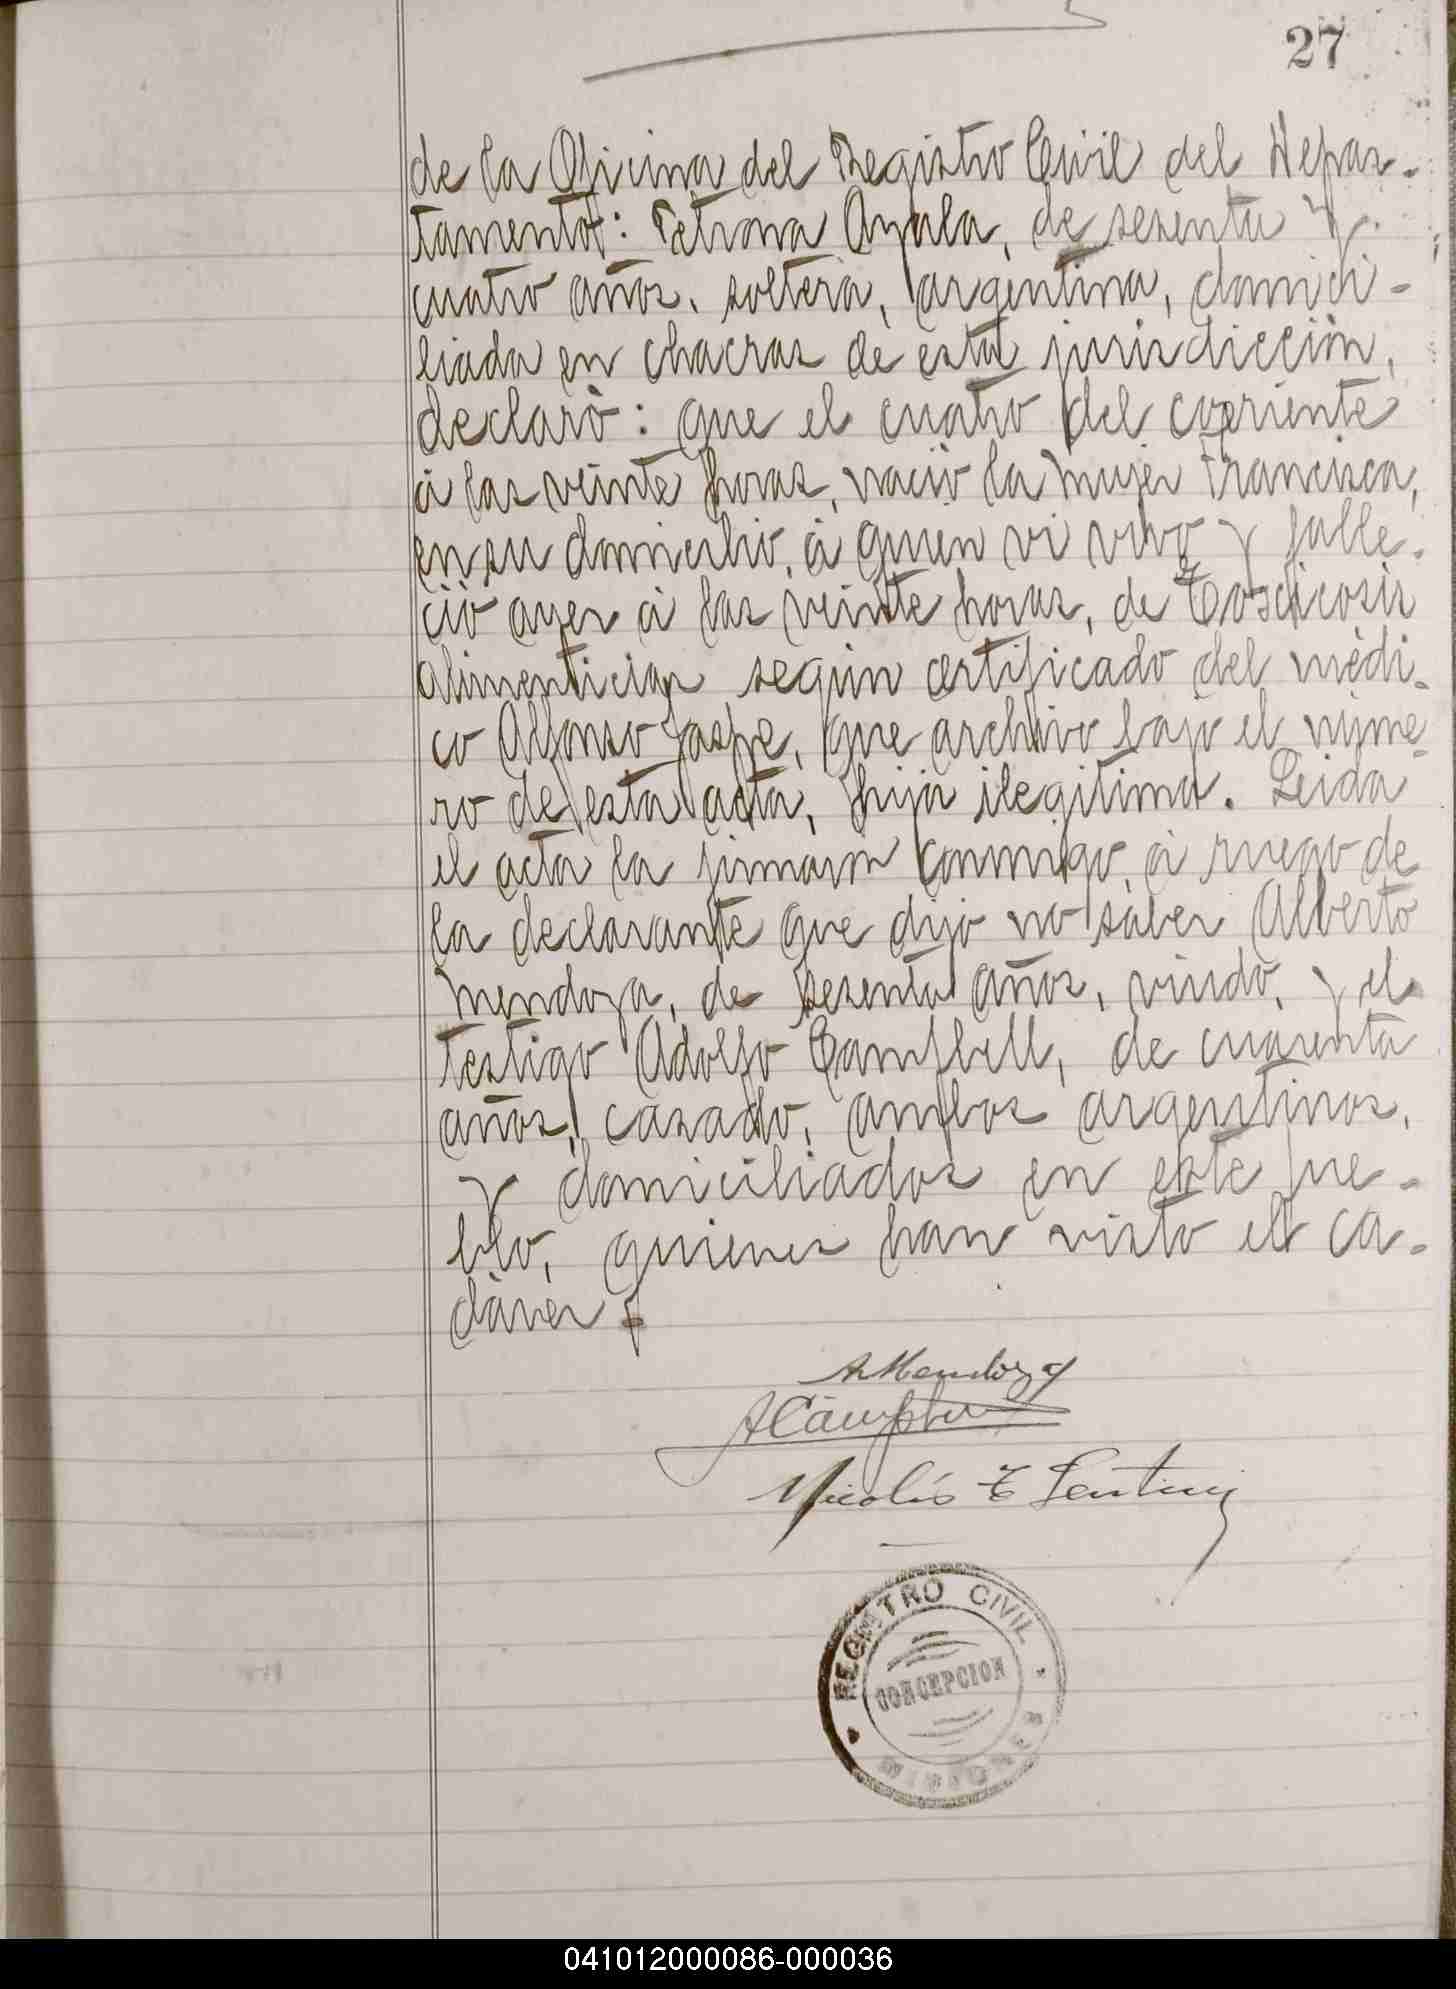 27
de la Oficina del Registro Civil del Depar-
tamento: Petrona Ayala, de sesenta y
cuatro años, soltera, argentina, domici-
liada en chacras de esta jurisdicción,
declaró: que el cuatro del corriente
á las veinte horas, nació la mujer Francisca,
en su domicilio, á quien vi vivo y falle-
ció ayer á las veinte horas, de Toscicosis
alimenticias según certificado del médi-
co Alfonso Jaspe, que archivo bajo el núme-
ro de esta acta, hija ilegitima. Leida
el acta la firmaron conmigo, á ruego de
la declarante que dijo no saber Alberto
Mendoza, de sesenta años, viudo, y el
testigo Adolfo Campbell, de cuarenta
años, casado, ambos argentinos,
y domiciliados en este pue-
blo, quienes han visto el ca-
dáver
A Mendoza
A Campbell
Nicolás
REGISTRO CIVIL
CONCEPCION
MISIONES
041012000086-000036